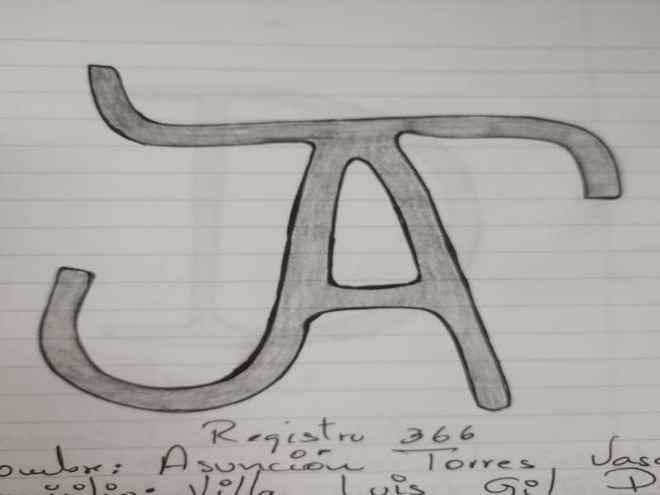 JA
Registro 366
ombre: Asunción Torres Vasq
Villa Luis Gil D